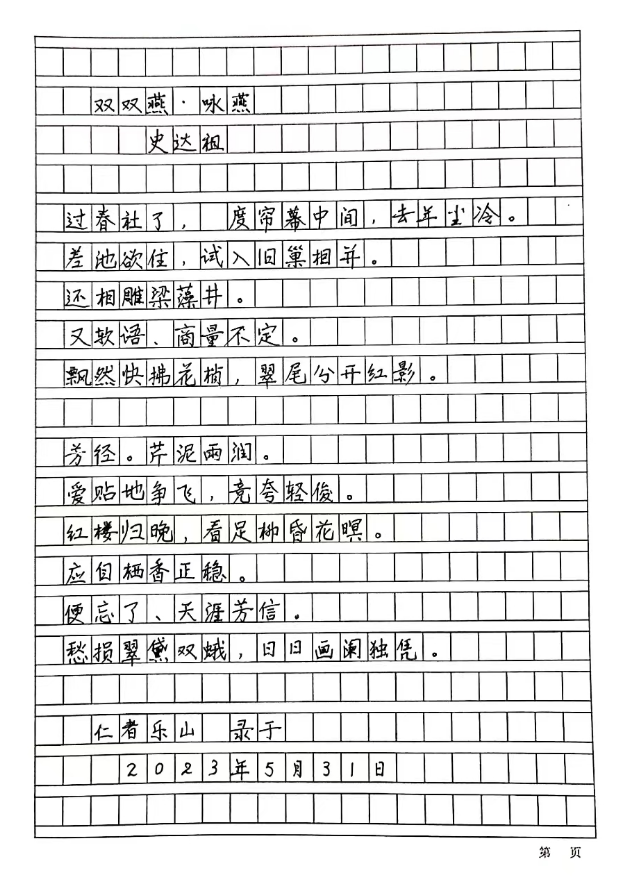 双双燕·咏燕
史达祖
过春社了， 度帘幕中间，去年尘冷。
差池欲住，试入旧巢相并。
还相雕梁藻井。
又软语、商量不定。
飘然快拂花梢，翠尾分开红影。
芳径。芹泥雨润。
爱贴地争飞，竞夸轻俊。
红楼归晚，看足柳昏花暝。
应自栖香正稳。
便忘了、天涯芳信。
愁损翠黛双蛾，日日画阑独凭。
仁者乐山 录于
2023年5月31日
第 页